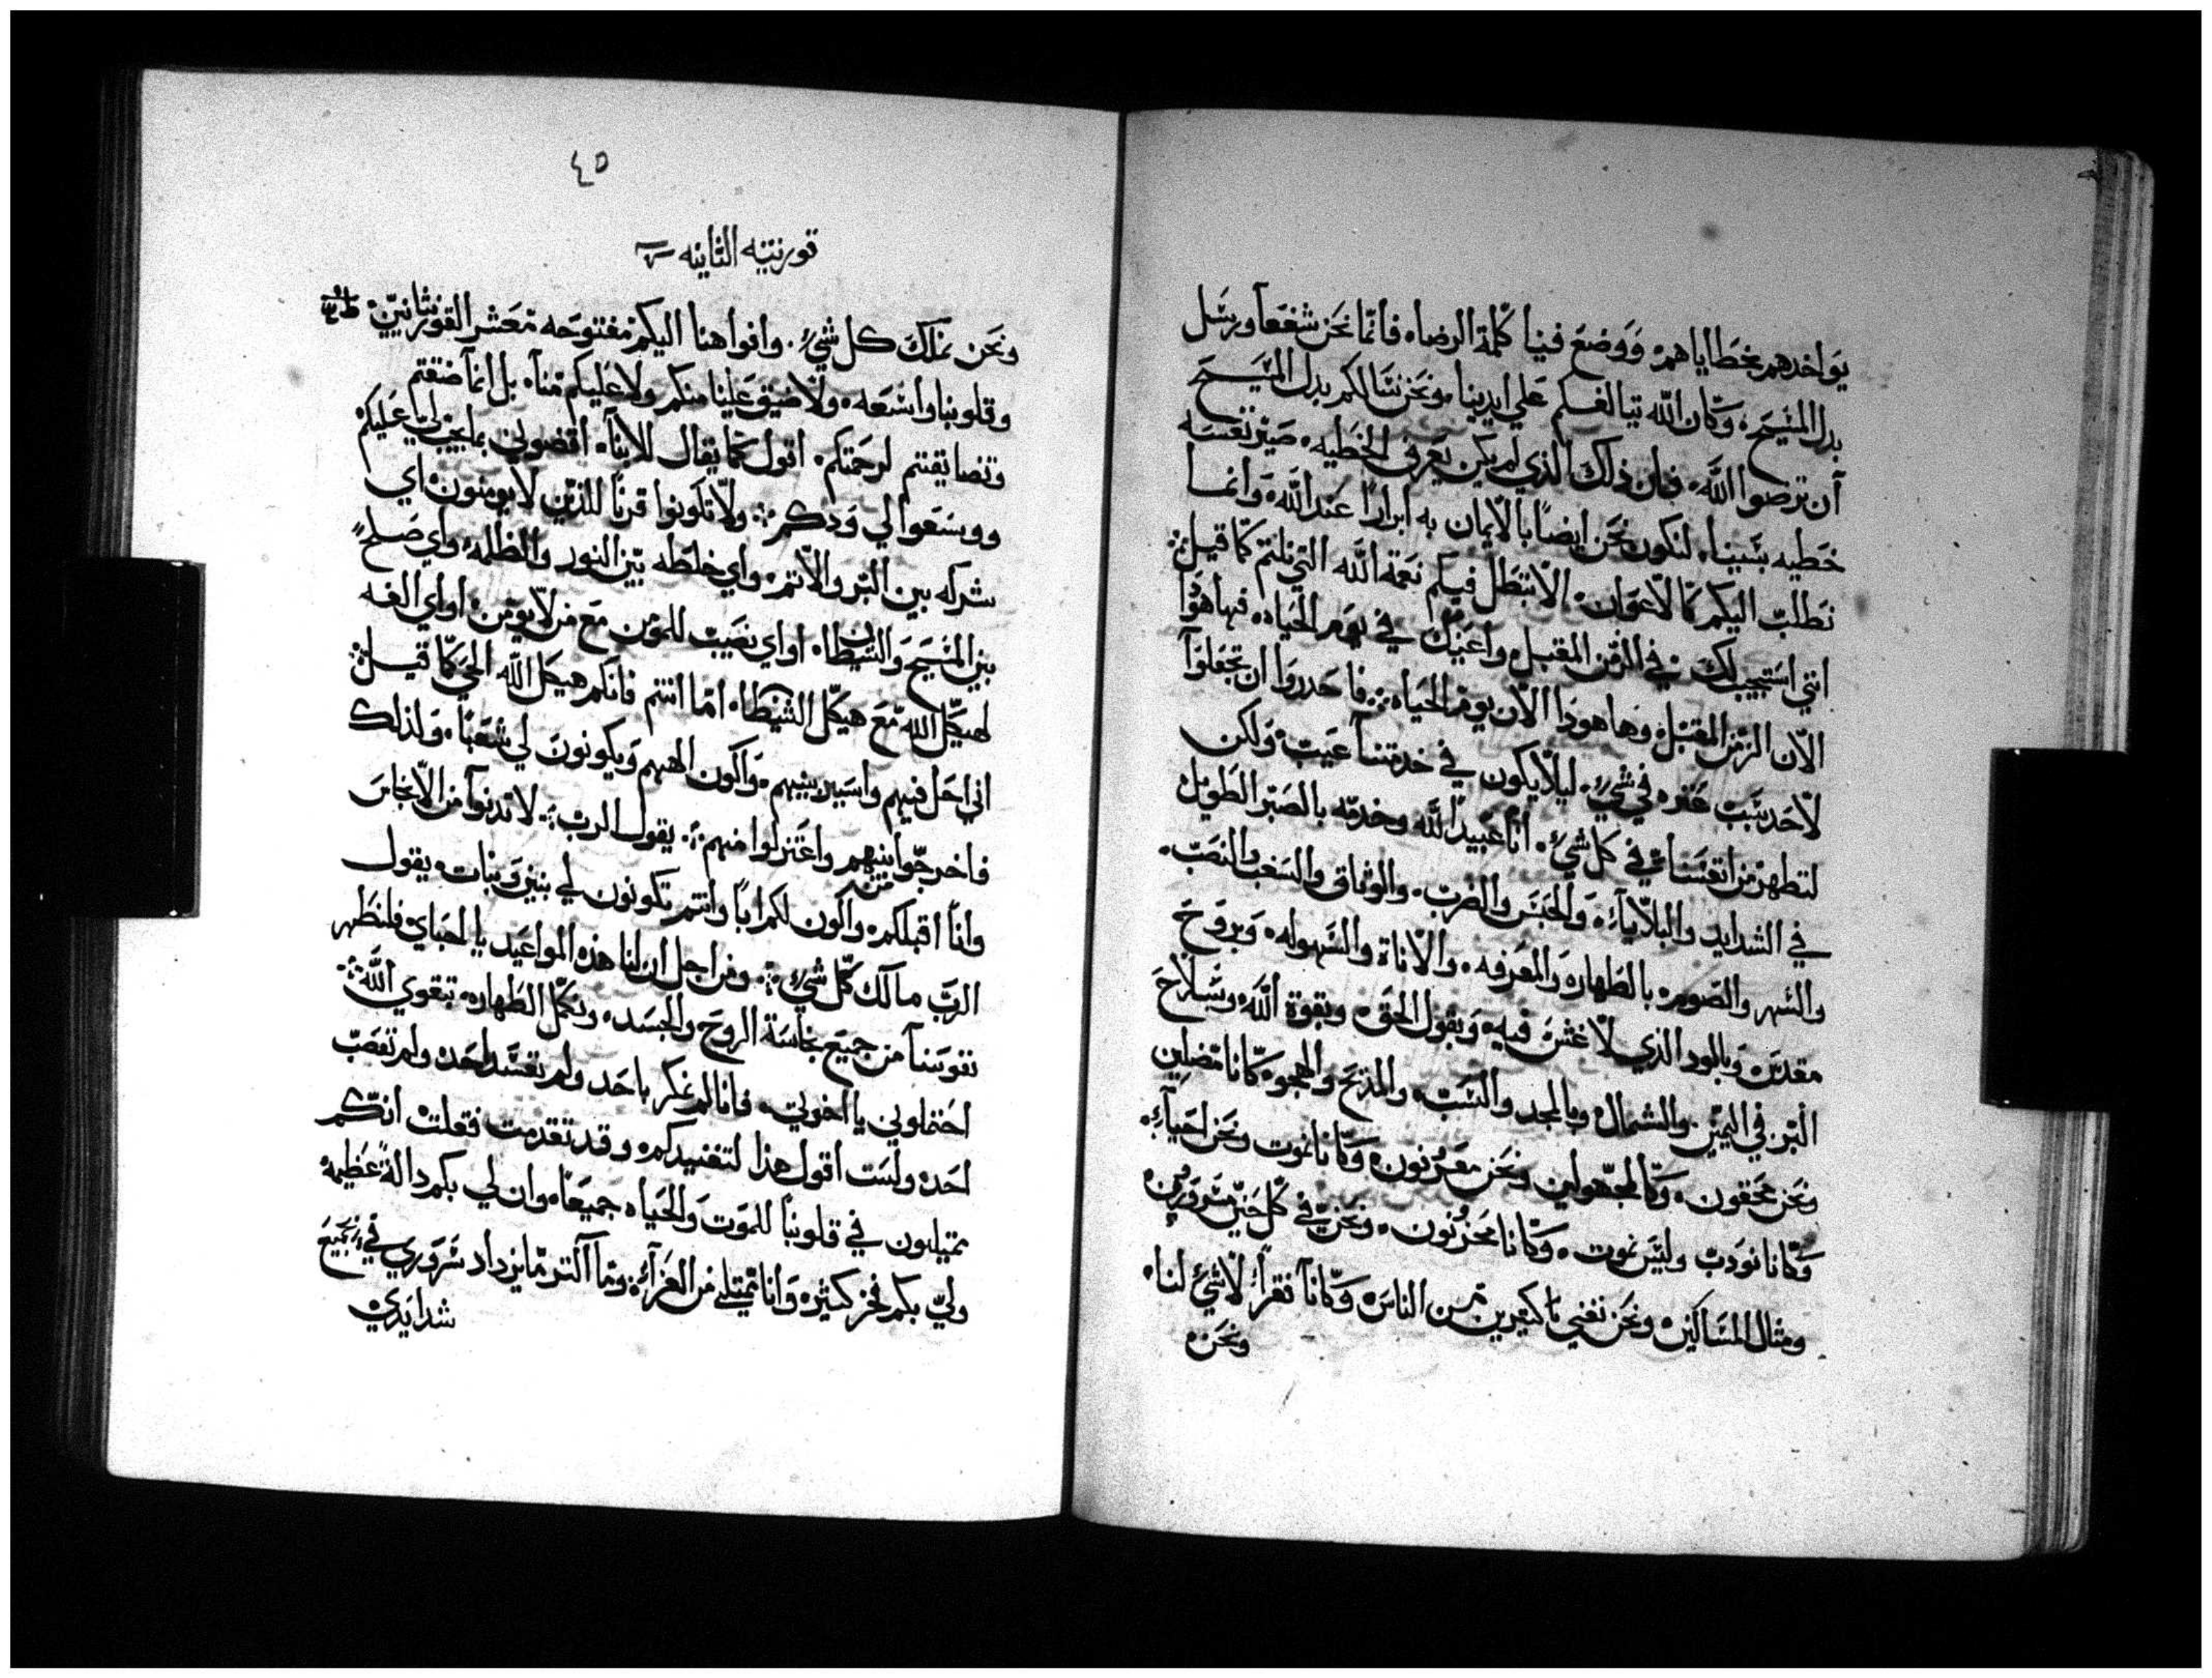 يواخدهم بخطاياهم ووضع فينا كلمة الرضاه فانما نحن شفعا ورسل
بدل المسيح وكان الله تيالفكم علي ايدينا ونحن نسالكم بدل المسيح
ان ترضوا الله فان ذلك الذي لم يكن يعرف الخطيه صير نفسه
خطيه بسببنا لنكون نحن ايضا بالايمان به ابرارا عند الله وانما
نطلب اليكم كالاعوان الا تبطل فيكم نعمة الله التي نلتم كما قيل
انني استجيب لك في الزمن المقبل واعينك في يوم الحياه فها هودا
الان الزمن المقبل وها هودا الان يوم الحياه فاحدروا ان تجعلوا
لاحد سبب عتره في شيء ليلا يكون في خدمتنا عيب ولكن
لتطهر من انفسنا في كل شيء انا عبيد الله وخدمه بالصبر الطويل
في الشدايد والبلاياء والحبس والضرب والوثاق والسغب والنصب
والسهر والصوم بالطهاره والمعرفه والاناة والسهوله وبروح
مقدس وبالود الذي لا غش فيه وبقول الحق وبقوة الله وسلاح
البر في اليمين والشمال وبالمجد والسب والمدح والهجو كاننا مضلين
ونحن محقون وكالمجهولين ونحن معروفون وكاننا نموت ونحن احياء
وكاننا نودب وليس نموت وكاننا محزونون ونحن في كل حين مسرورين
ومثال المساكين ونحن نغني كتيرين من الناس وكاننا فقرا لا شي لنا
ونحن
٤٥
قورنتيه الثانيه
ونحن نملك كل شيء وافواهنا اليكم مفتوحه معشر القورنثانيين
وقلوبنا واسعه ولا ضيق علينا منكم ولا عليكم منا بل انما ضقتم
وتضايقتم لرحمتكم اقول كما يقال للابناء اقضوني بما يجب لي عليكم
ووسعوا لي ودكم ولا تكونوا قرنا للذين لا يومنون اي
شركه بين البر والاتم واي خلطه بين النور والظلمه واي صلح
بين المسيح والشيطان او اي نصيب للمؤمن مع من لا يؤمن او اي الفه
لهيكل الله مع هيكل الشيطان اما انتم فانكم هيكل الله الحي كما قيل
اني احل فيهم واسير بينهم واكون الههم ويكونون لي شعبا ولذلك
فاخرجوا من بينهم واعتزلوا منهم يقول الرب لا تدنوا من الانجاس
وانا اقبلكم واكون لكم ابا وانتم تكونون لي بنين وبنات يقول
الرب مالك كل شيء ومن اجل ان لنا هذه المواعيد يا احباي فلنطهر
نفوسنا من جميع نجاسة الروح والجسد ونكمل الطهاره بتقوي الله
احتملوني يا اخوتي فانا لم نمكر باحد ولم نفسد احد ولم نغصب
احد ولست اقول هذا لتفنيدكم وقد تقدمت فقلت انكم
ممتيلون في قلوبنا للموت والحياه جميعا وان لي بكم دالة عظيمه
ولي بكم فخر كثيره وانا ممتلي من العزاء وما اكتر ما يزداد سروري في جميع
شدايدي